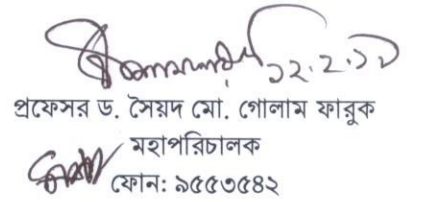 ১২.২.১৯
প্রফেসর ড. সৈয়দ মো. গোলাম ফারুক
মহাপরিচালক
ফোন: ৯৫৫৩৫৪২